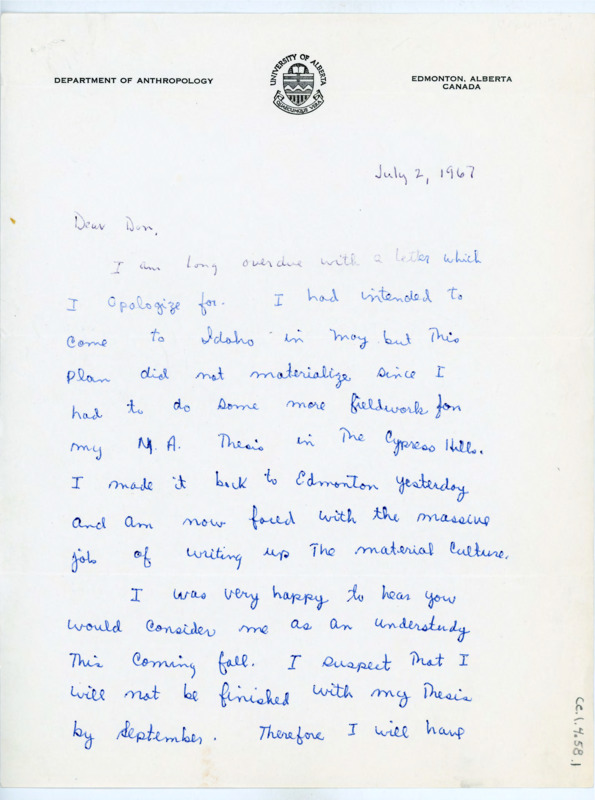 DEPARTMENT OF ANTHROPOLOGY
UNIVERSITY OF ALBERTA
QUAECUMQUE VERA
EDMONTON, ALBERTA
CANADA
July 2, 1967
Dear Don,
I am long overdue with a letter which
I apologize for. I had intended to
come to Idaho in May but this
plan did not materialize since I
had to do some more fieldwork for
my M.A. Thesis in The Cypress Hills.
I made it back to Edmonton yesterday
and am now faced with the massive
job of writing up The material Culture.
I was very happy to hear you
would consider me as an understudy
This coming fall. I suspect That I
will not be finished with my Thesis
by September. Therefore I will have
Cc.1.4.58.1